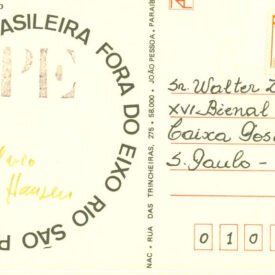 BRASILEIRA FORA DO EIXO RIO SÃO P
PE
Hansen
NAC • RUA DAS TRINCHEIRAS, 275 • 58.000 • JOÃO PESSOA, PARAÍB
Sr. Walter Z
XVI Bienal
Caixa Pos
S. Paulo -
0 1 0